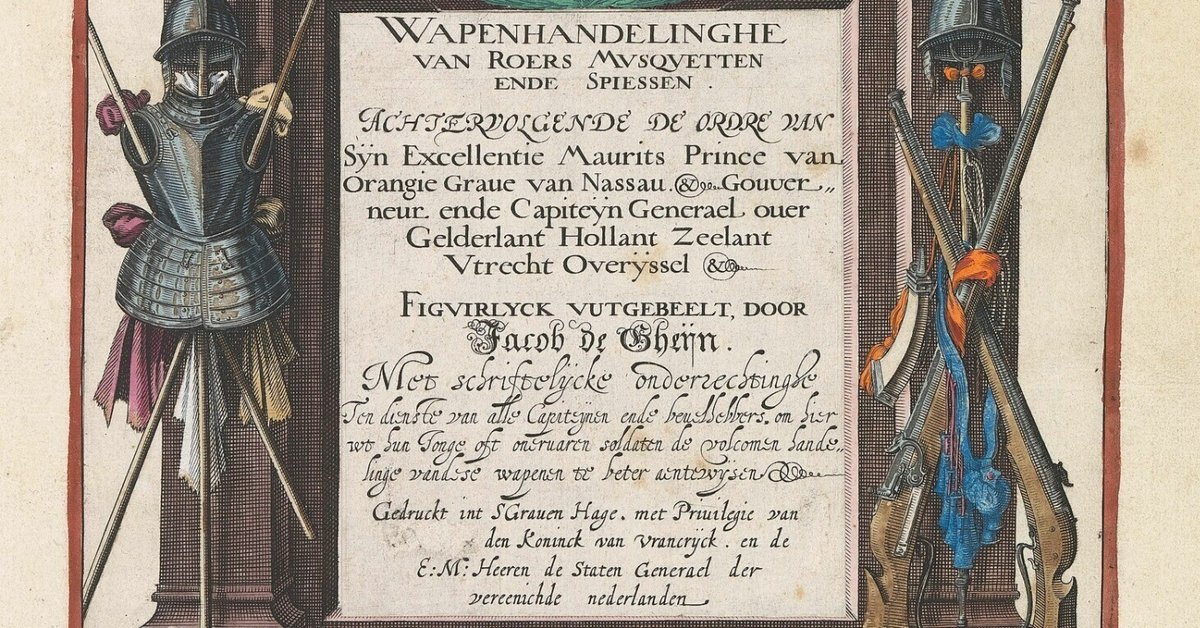 WAPENHANDELINGHE
VAN ROERS MVSQVETTEN
ENDE SPIESSEN.
ACHTERVOLGENDE DE ORDRE VAN
Sÿn Excellentie Maurits Prince van
Orangie Graue van Nassau. & Gouver„
neur ende Capiteÿn Generael ouer
Gelderlant Hollant Zeelant
Vtrecht Overÿssel &
FIGVIRLYCK VUTGEBEELT, DOOR
Jacob de Gheÿn.
Met schriftelÿcke onderrechtinghe
Ten dienste van alle Capiteÿnen ende beuelhebbers, om hier
wt hun Jonge oft oneruaren soldaten de volcomen hande„
linge vandese wapenen te beter aentewÿsen
Gedruckt int SGrauen Hage. met Priuilegie van
den Koninck van Vrancrÿck. en de
E: M: Heeren de Staten Generael der
vereenichde nederlanden